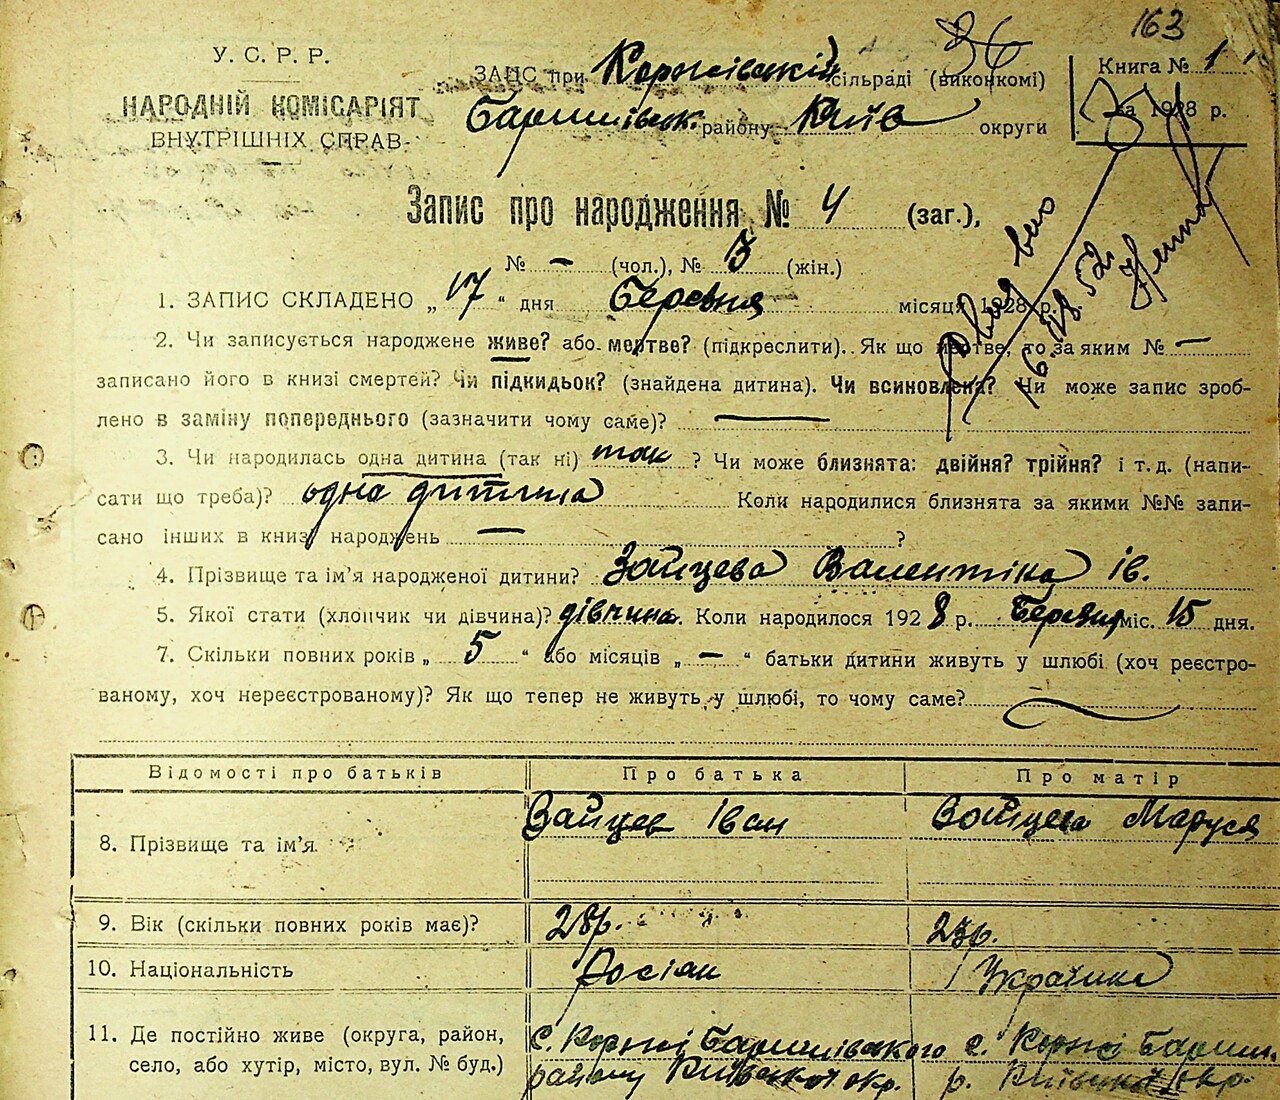 163
36
У. С. Р. Р.
НАРОДНІЙ КОМІСАРІЯТ
ВНУТРІШНІХ СПРАВ
ЗАГС при Корніївській сільраді (виконкомі)
Баришівськ. району Київ округи
Книга № 1
за 1928 р.
Запис про народження № 4 (заг.),
№ — (чол.), № 3 (жін.)
1. ЗАПИС СКЛАДЕНО „ 17 “ дня Березня місяця 1928 р.
2. Чи записується народжене живе? або мертве? (підкреслити). Як що мертве, то за яким № —
записано його в книзі смертей? Чи підкидьок? (знайдена дитина). Чи всиновлена? Чи може запис зроб-
лено в заміну попереднього (зазначити чому саме)? —
3. Чи народилась одна дитина (так ні) так ? Чи може близнята: двійня? трійня? і т. д. (напи-
сати що треба)? одна дитина Коли народилися близнята за якими №№ запи-
сано інших в книзі народжень — ?
4. Прізвище та ім’я народженої дитини? Зайцева Валентіна Ів.
5. Якої стати (хлопчик чи дівчина)? дівчина. Коли народилося 1928 р. Березня міс. 15 дня.
7. Скільки повних років „ 5 “ або місяців „ — “ батьки дитини живуть у шлюбі (хоч реєстро-
ваному, хоч нереєстрованому)? Як що тепер не живуть у шлюбі, то чому саме?
Відомості про батьків Про батька Про матір
8. Прізвище та ім’я Зайцев Іван Зайцева Маруся
9. Вік (скільки повних років має)? 28р. 23р.
10. Національність Росіян Українка
11. Де постійно живе (округа, район, с. Корніі Баришівського с. Корніі Бариш.
село, або хутір, місто, вул. № буд.) району Київської окр. р. Київської окр.